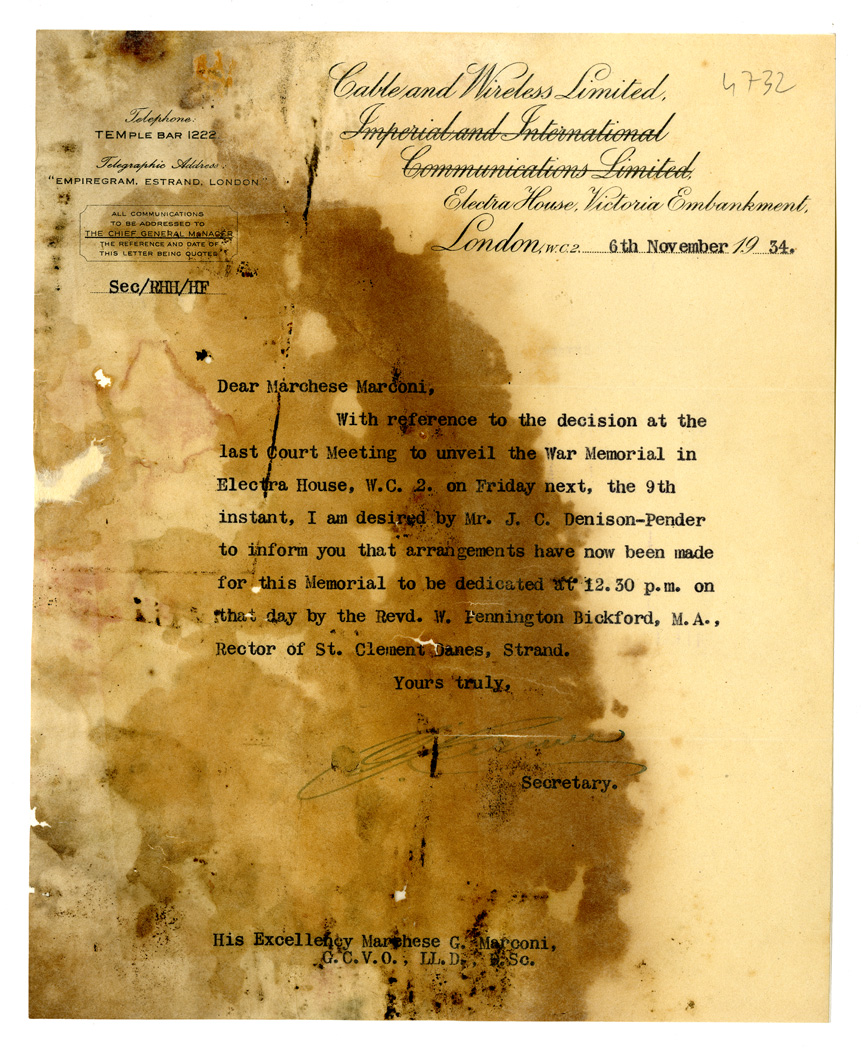 4732
Cable and Wireless Limited,
Imperial and International
Communications Limited,
Electra House, Victoria Embankment,
London, W.C.2. 6th November 1934.
Telephone:
TEMPLE BAR 1222
Telegraphic Address:
"EMPIREGRAM, ESTRAND, LONDON"
ALL COMMUNICATIONS
TO BE ADDRESSED TO
THE CHIEF GENERAL MANAGER
THE REFERENCE AND DATE OF
THIS LETTER BEING QUOTED
Sec/RHH/HF
Dear Marchese Marconi,
With reference to the decision at the
last Court Meeting to unveil the War Memorial in
Electra House, W.C. 2. on Friday next, the 9th
instant, I am desired by Mr. J. C. Denison-Pender
to inform you that arrangements have now been made
for this Memorial to be dedicated at 12.30 p.m. on
that day by the Revd. W. Pennington Bickford, M.A.,
Rector of St. Clement Danes, Strand.
Yours truly,
Secretary.
His Excellency Marchese G. Marconi,
G.C.V.O., LL.D., D.Sc.